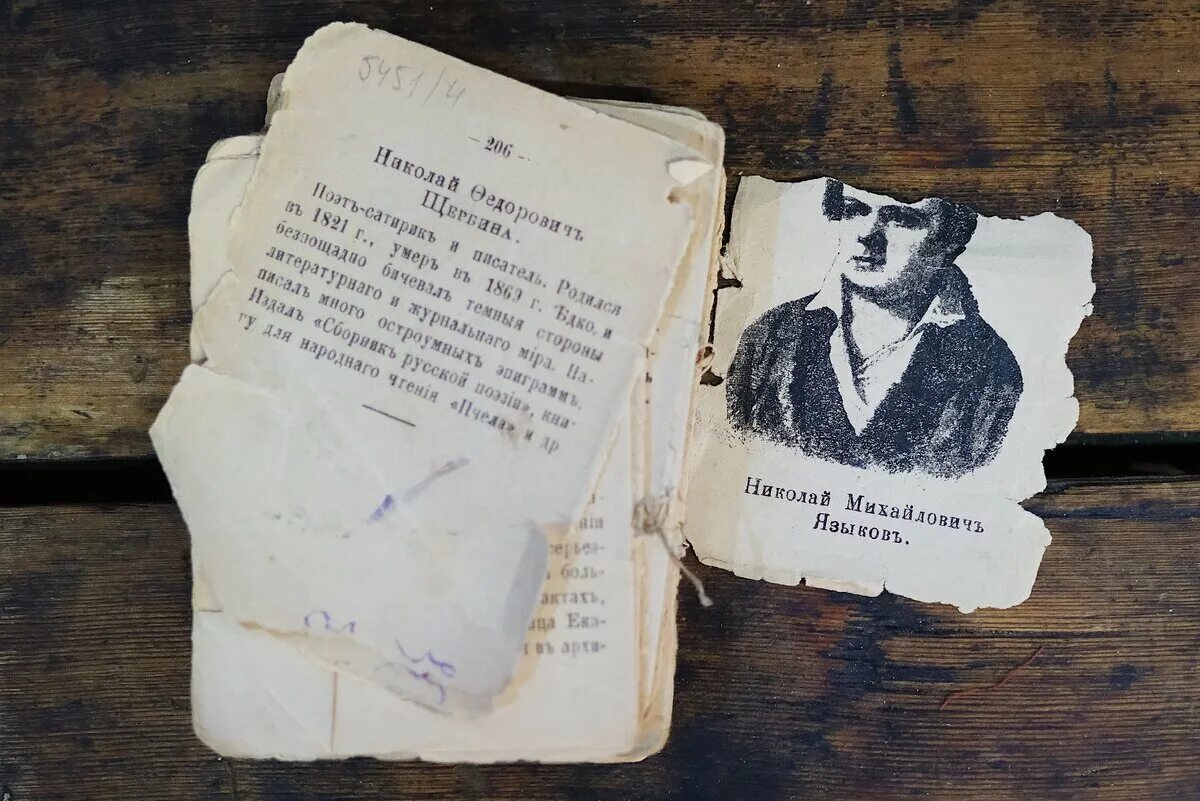 5451/4
— 206 —
Николай Ѳедоровичъ
Щербина.
Поэтъ-сатирикъ и писатель. Родился
въ 1821 г., умеръ въ 1869 г. Ѣдко и
безпощадно бичевалъ темныя стороны
литературнаго и журнальнаго міра. На-
писалъ много остроумныхъ эпиграммъ.
Издалъ «Сборникъ русской поэзіи», кни-
гу для народнаго чтенія «Пчела» и др
ніи
серьез-
боль-
актахъ,
ица Ека-
въ архи-
Николай Михайловичъ
Языковъ.